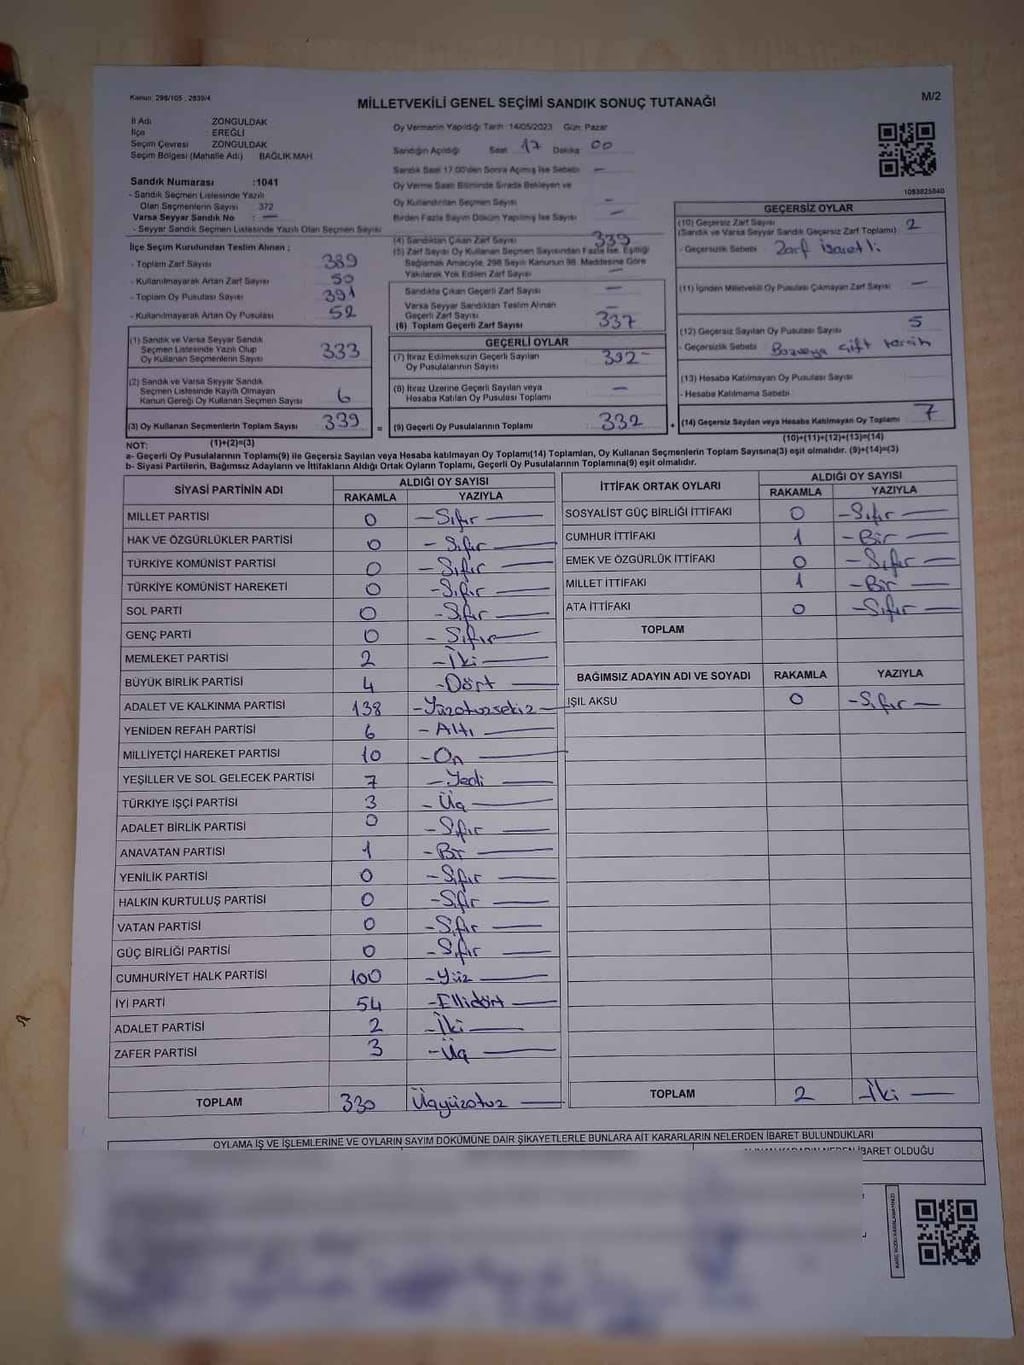 Kanun: 298/105, 2839/4
MİLLETVEKİLİ GENEL SEÇİMİ SANDIK SONUÇ TUTANAĞI
M/2
İl Adı ZONGULDAK
İlçe EREĞLİ
Seçim Çevresi ZONGULDAK
Seçim Bölgesi (Mahalle Adı) BAĞLIK MAH
Oy Vermenin Yapıldığı Tarih :14/05/2023 Gün: Pazar
Sandığın Açıldığı Saat 17 Dakika 00
Sandık Saat 17.00'den Sonra Açılmış İse Sebebi —
Oy Verme Saati Bitiminde Sırada Bekleyen ve
Oy Kullandırılan Seçmen Sayısı —
Birden Fazla Sayım Döküm Yapılmış İse Sayısı —
Sandık Numarası :1041
- Sandık Seçmen Listesinde Yazılı
Olan Seçmenlerin Sayısı 372
Varsa Seyyar Sandık No : —
- Seyyar Sandık Seçmen Listesinde Yazılı Olan Seçmen Sayısı
İlçe Seçim Kurulundan Teslim Alınan ;
- Toplam Zarf Sayısı 389
- Kullanılmayarak Artan Zarf Sayısı 50
- Toplam Oy Pusulası Sayısı 391
- Kullanılmayarak Artan Oy Pusulası 52
(1) Sandık ve Varsa Seyyar Sandık
Seçmen Listesinde Yazılı Olup
Oy Kullanan Seçmenlerin Sayısı 333
(2) Sandık ve Varsa Seyyar Sandık
Seçmen Listesinde Kayıtlı Olmayan
Kanun Gereği Oy Kullanan Seçmen Sayısı 6
(3) Oy Kullanan Seçmenlerin Toplam Sayısı 339 =
(4) Sandıktan Çıkan Zarf Sayısı 339
(5) Zarf Sayısı Oy Kullanan Seçmen Sayısından Fazla İse, Eşitliği
Sağlamak Amacıyla, 298 Sayılı Kanunun 98. Maddesine Göre
Yakılarak Yok Edilen Zarf Sayısı —
Sandıkta Çıkan Geçerli Zarf Sayısı —
Varsa Seyyar Sandıktan Teslim Alınan
Geçerli Zarf Sayısı —
(6) Toplam Geçerli Zarf Sayısı 337
GEÇERLİ OYLAR
(7) İtiraz Edilmeksizin Geçerli Sayılan
Oy Pusulalarının Sayısı 332
(8) İtiraz Üzerine Geçerli Sayılan veya
Hesaba Katılan Oy Pusulası Toplamı —
(9) Geçerli Oy Pusulalarının Toplamı 332 +
1093025040
GEÇERSİZ OYLAR
(10) Geçersiz Zarf Sayısı 2
(Sandık ve Varsa Seyyar Sandık Geçersiz Zarf Toplamı)
- Geçersizlik Sebebi Zarf İşaretli
(11) İçinden Milletvekili Oy Pusulası Çıkmayan Zarf Sayısı —
(12) Geçersiz Sayılan Oy Pusulası Sayısı 5
- Geçersizlik Sebebi çift tercih
(13) Hesaba Katılmayan Oy Pusulası Sayısı —
- Hesaba Katılmama Sebebi
(14) Geçersiz Sayılan veya Hesaba Katılmayan Oy Toplamı 7
NOT: (1)+(2)=(3) (10)+(11)+(12)+(13)=(14)
a- Geçerli Oy Pusulalarının Toplamı(9) ile Geçersiz Sayılan veya Hesaba Katılmayan Oy Toplamı(14) Toplamları, Oy Kullanan Seçmenlerin Toplam Sayısına(3) eşit olmalıdır. (9)+(14)=(3)
b- Siyasi Partilerin, Bağımsız Adayların ve İttifakların Aldığı Ortak Oyların Toplamı, Geçerli Oy Pusulalarının Toplamına(9) eşit olmalıdır.
SİYASİ PARTİNİN ADI ALDIĞI OY SAYISI
RAKAMLA YAZIYLA
MİLLET PARTİSI 0 -Sıfır—
HAK VE ÖZGÜRLÜKLER PARTİSİ 0 -Sıfır—
TÜRKİYE KOMÜNİST PARTİSİ 0 -Sıfır—
TÜRKİYE KOMÜNİST HAREKETİ 0 -Sıfır—
SOL PARTİ 0 -Sıfır—
GENÇ PARTİ 0 -Sıfır—
MEMLEKET PARTİSİ 2 -İki—
BÜYÜK BİRLİK PARTİSİ 4 -Dört—
ADALET VE KALKINMA PARTİSİ 138 -Yüzotuzsekiz—
YENİDEN REFAH PARTİSİ 6 -Altı—
MİLLİYETÇİ HAREKET PARTİSİ 10 -On—
YEŞİLLER VE SOL GELECEK PARTİSİ 7 -Yedi—
TÜRKİYE İŞÇİ PARTİSİ 3 -Üç—
ADALET BİRLİK PARTİSİ 0 -Sıfır—
ANAVATAN PARTİSİ 1 -Bir—
YENİLİK PARTİSİ 0 -Sıfır—
HALKIN KURTULUŞ PARTİSİ 0 -Sıfır—
VATAN PARTİSİ 0 -Sıfır—
GÜÇ BİRLİĞİ PARTİSİ 0 -Sıfır—
CUMHURİYET HALK PARTİSİ 100 -Yüz—
İYİ PARTİ 54 -Ellidört—
ADALET PARTİSİ 2 -İki—
ZAFER PARTİSİ 3 -Üç—
TOPLAM 330 Üçyüzotuz—
İTTİFAK ORTAK OYLARI ALDIĞI OY SAYISI
RAKAMLA YAZIYLA
SOSYALİST GÜÇ BİRLİĞİ İTTİFAKI 0 -Sıfır—
CUMHUR İTTİFAKI 1 -Bir—
EMEK VE ÖZGÜRLÜK İTTİFAKI 0 -Sıfır—
MİLLET İTTİFAKI 1 -Bir—
ATA İTTİFAKI 0 -Sıfır—
TOPLAM
BAĞIMSIZ ADAYIN ADI VE SOYADI RAKAMLA YAZIYLA
IŞIL AKSU 0 -Sıfır—
TOPLAM 2 -İki—
OYLAMA İŞ VE İŞLEMLERINE VE OYLARIN SAYIM DÖKÜMÜNE DAİR ŞİKAYETLERLE BUNLARA AİT KARARLARIN NELERDEN İBARET BULUNDUKLARI
İBARET OLDUĞU